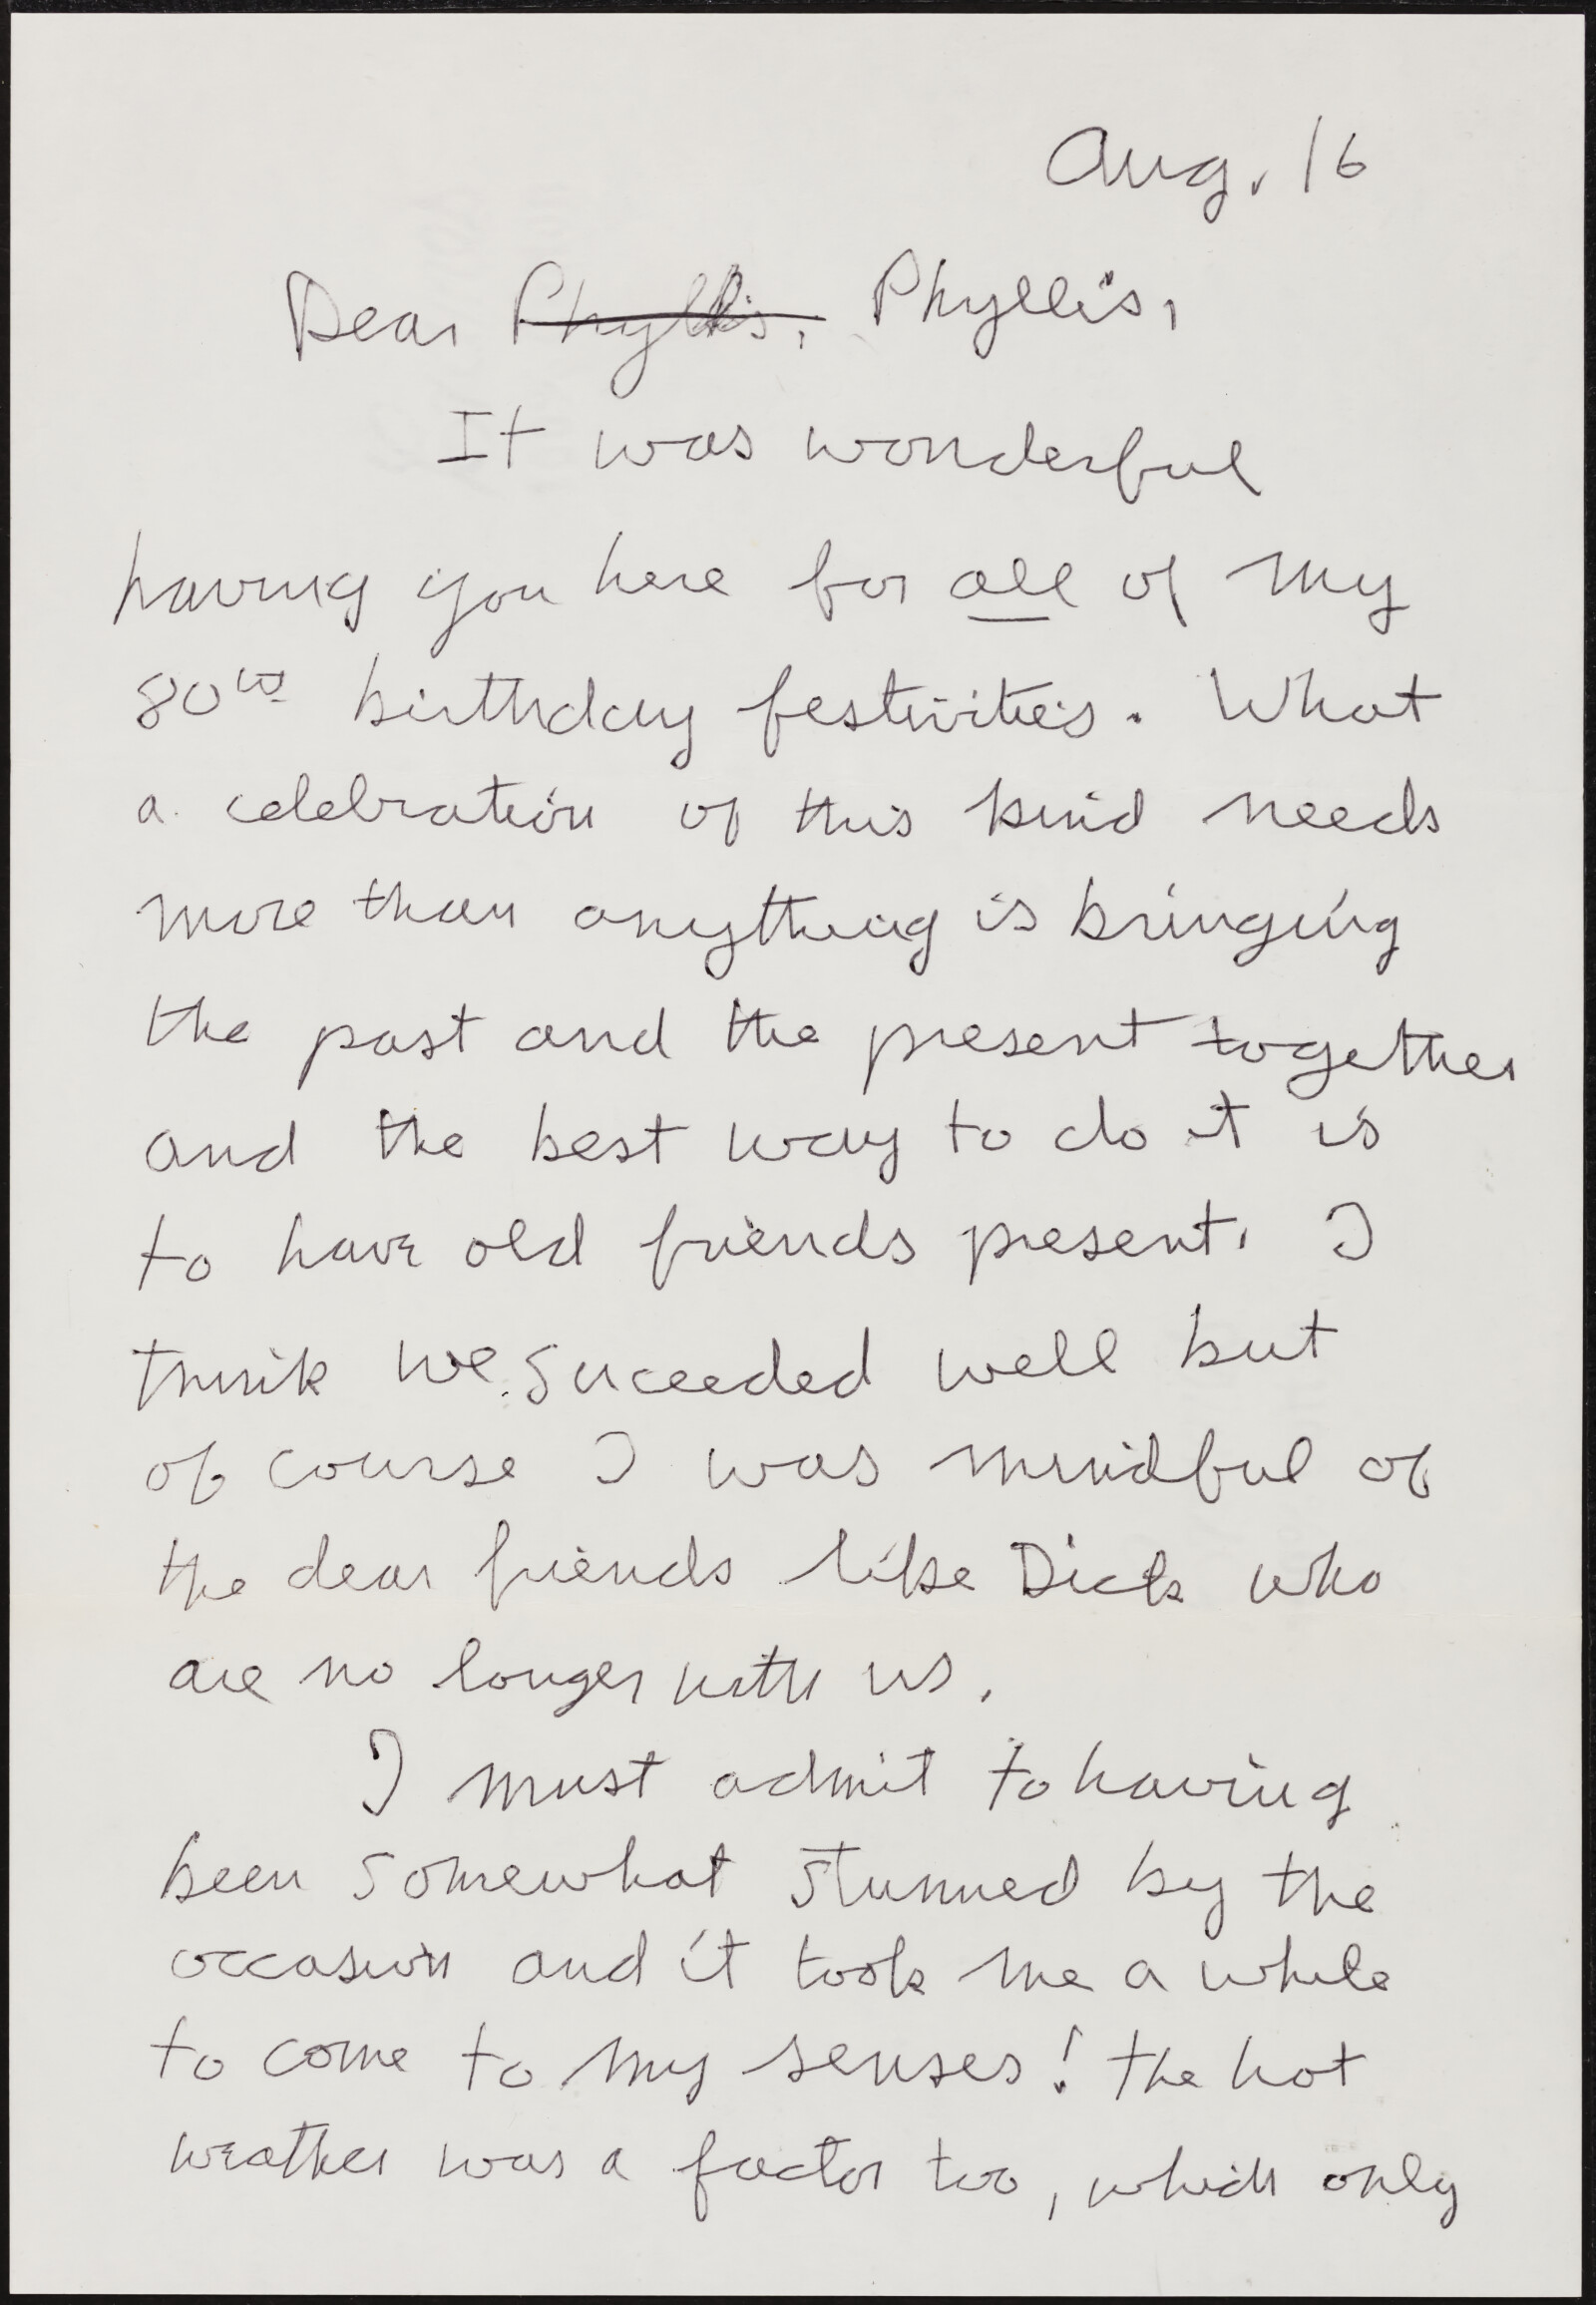 Aug. 16
Dear Phyllis, Phyllis,
It was wonderful
having you here for all of my
80th birthday festivities. What
a celebration of this kind needs
more than anything is bringing
the past and the present together
and the best way to do it is
to have old friends present. I
think we suceeded well but
of course I was mindful of
the dear friends like Dick who
are no longer with us.
I must admit to having
been somewhat stunned by the
occasion and it took me a while
to come to my senses! the hot
weather was a factor too, which only